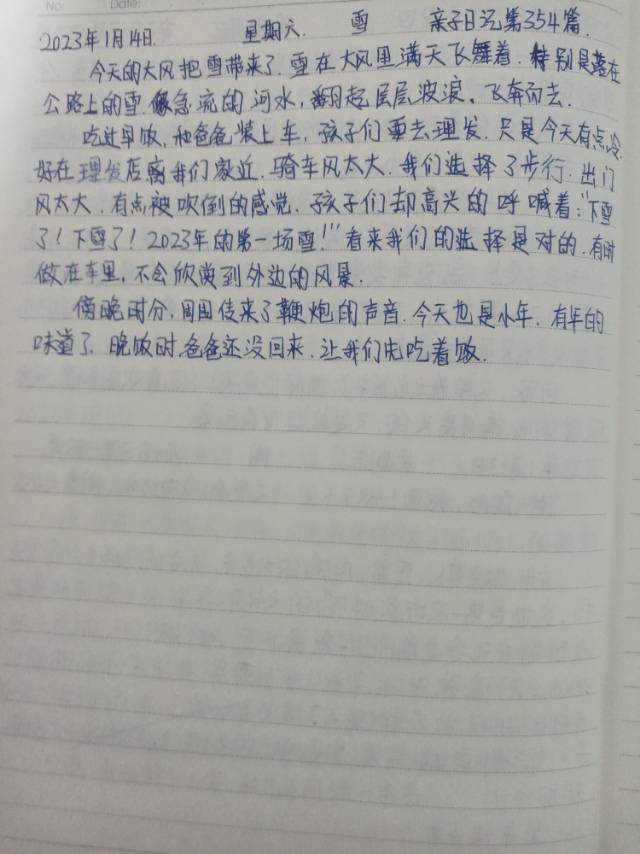 No: Date:
2023年1月14日. 星期六. 雪 亲子日记第354篇.
今天的大风把雪带来了.雪在大风里满天飞舞着.特别是落在
公路上的雪.像急流的河水,翻起层层波浪,飞奔而去.
吃过早饭,和爸爸装上车,孩子们要去理发.只是今天有点冷.
好在理发店离我们家近.骑车风太大.我们选择了步行.出门
风太大.有点被吹倒的感觉.孩子们却高兴的呼喊着:"下雪
了!下雪了!2023年的第一场雪!"看来我们的选择是对的.有时
做在车里,不会欣赏到外边的风景.
傍晚时分,周围传来了鞭炮的声音.今天也是小年.有年的
味道了.晚饭时.爸爸还没回来.让我们先吃着饭.